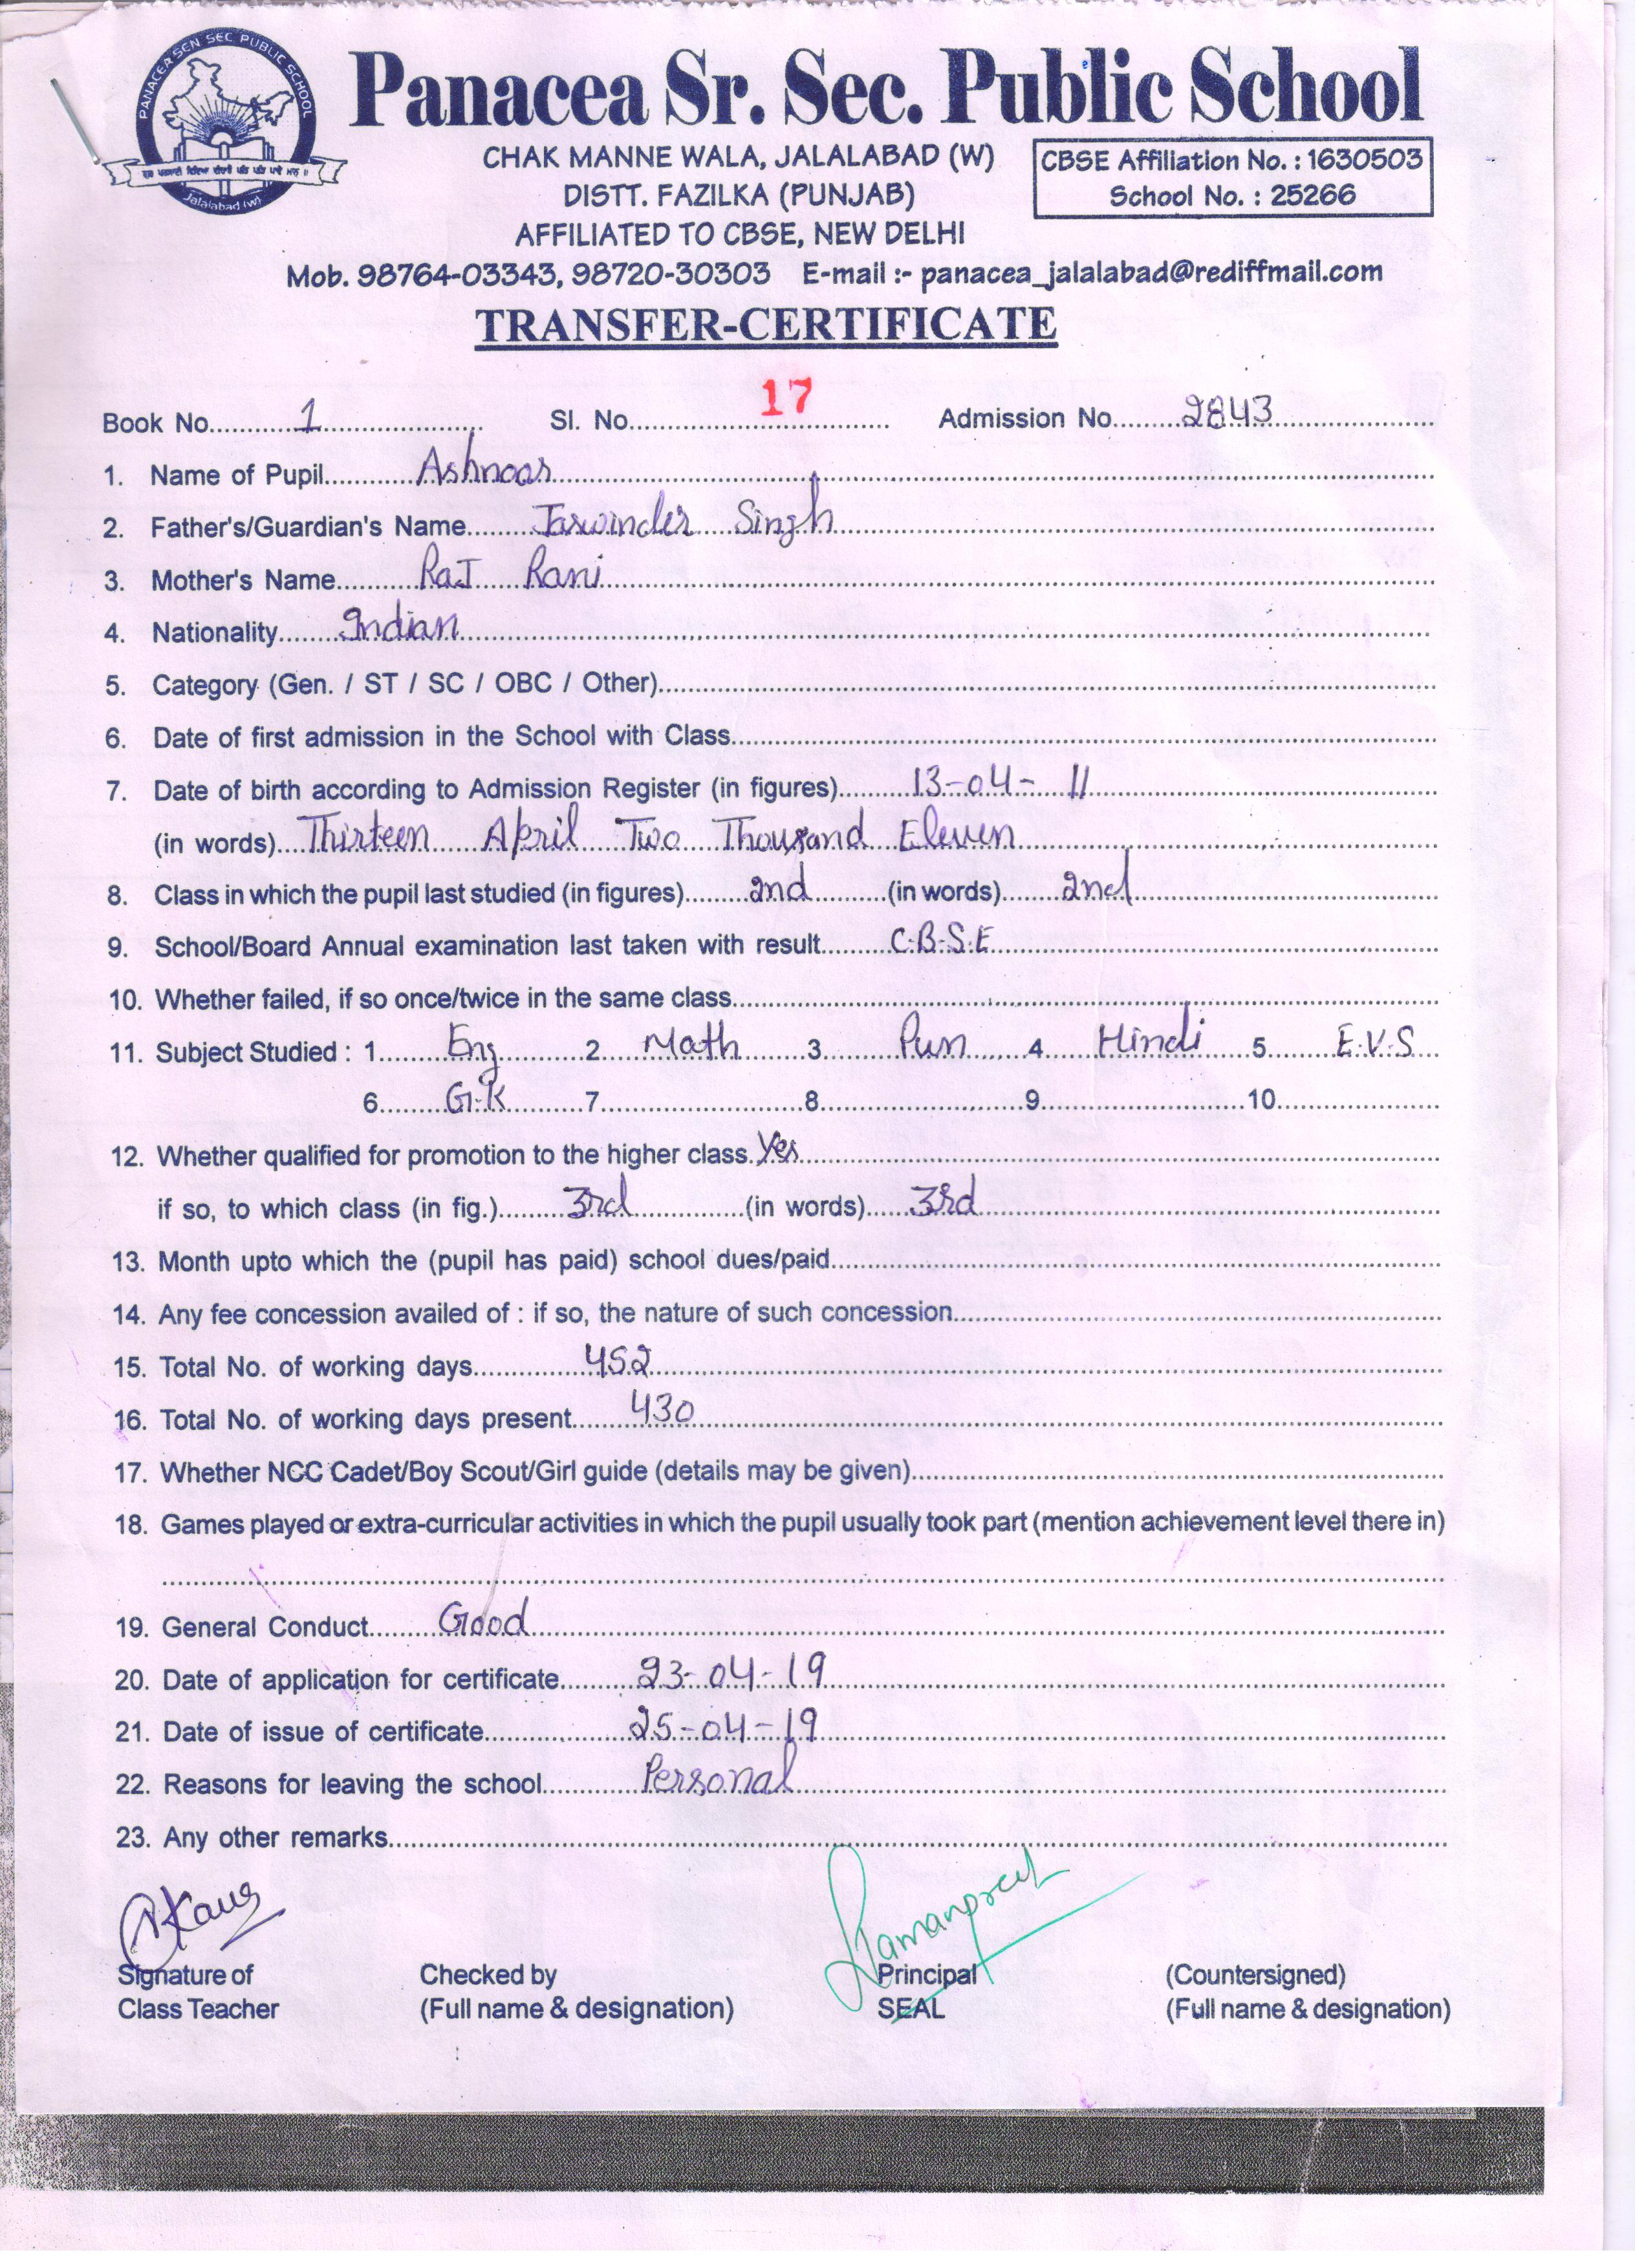 PANACEA SCN SEC PUBLIC SCHOOL
Jalalabad (w)
Panacea Sr. Sec. Public School
CHAK MANNE WALA, JALALABAD (W)
DISTT. FAZILKA (PUNJAB)
AFFILIATED TO CBSE, NEW DELHI
CBSE Affiliation No. : 1630503
School No. : 25266
Mob. 98764-03343, 98720-30303 E-mail :- panacea_jalalabad@rediffmail.com
TRANSFER-CERTIFICATE
Book No. 1 Sl. No. 17 Admission No. 2843
1. Name of Pupil Ashnoor
2. Father's/Guardian's Name Jaswinder Singh
3. Mother's Name RaJ Rani
4. Nationality Indian
5. Category (Gen. / ST / SC / OBC / Other)
6. Date of first admission in the School with Class
7. Date of birth according to Admission Register (in figures) 13-04-11
(in words) Thirteen April Two Thousand Eleven
8. Class in which the pupil last studied (in figures) 2nd (in words) 2nd
9. School/Board Annual examination last taken with result C.B.S.E
10. Whether failed, if so once/twice in the same class
11. Subject Studied : 1 Eng 2 Math 3 Pun 4 Hindi 5 E.V.S
6 G.K 7 8 9 10
12. Whether qualified for promotion to the higher class. Yes
if so, to which class (in fig.) 3rd (in words) 3rd
13. Month upto which the (pupil has paid) school dues/paid
14. Any fee concession availed of : if so, the nature of such concession
15. Total No. of working days 452
16. Total No. of working days present 430
17. Whether NCC Cadet/Boy Scout/Girl guide (details may be given)
18. Games played or extra-curricular activities in which the pupil usually took part (mention achievement level there in)
19. General Conduct Good
20. Date of application for certificate 23-04-19
21. Date of issue of certificate 25-04-19
22. Reasons for leaving the school Personal
23. Any other remarks
Ramanpreet
Signature of Checked by Principal (Countersigned)
Class Teacher (Full name & designation) SEAL (Full name & designation)